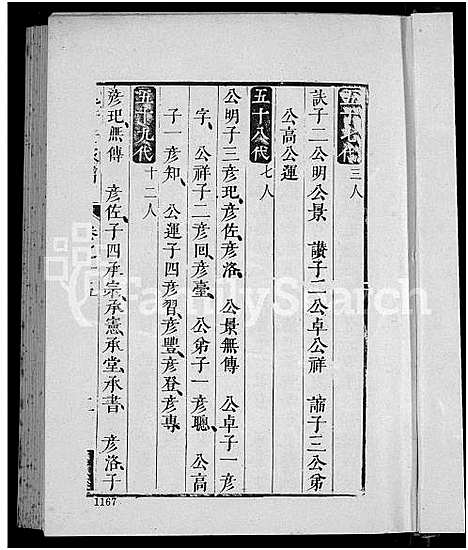 五十七代 三人
訣子二公明公景 讚子二公卓公祥 諦子三公弟
公高公運
五十八代 七人
公明子三彦玘彦佐彦洛 公景無傳 公卓子一彦
字 公祥子二彦回彦臺 公弟子一彦聰 公高
子一彦知 公運子四彦習彦豐彦登彦專
五十九代 十二人
彦玘無傳 彦佐子四承宗承憲承堂承書 彦洛子
1167
FamilySearch